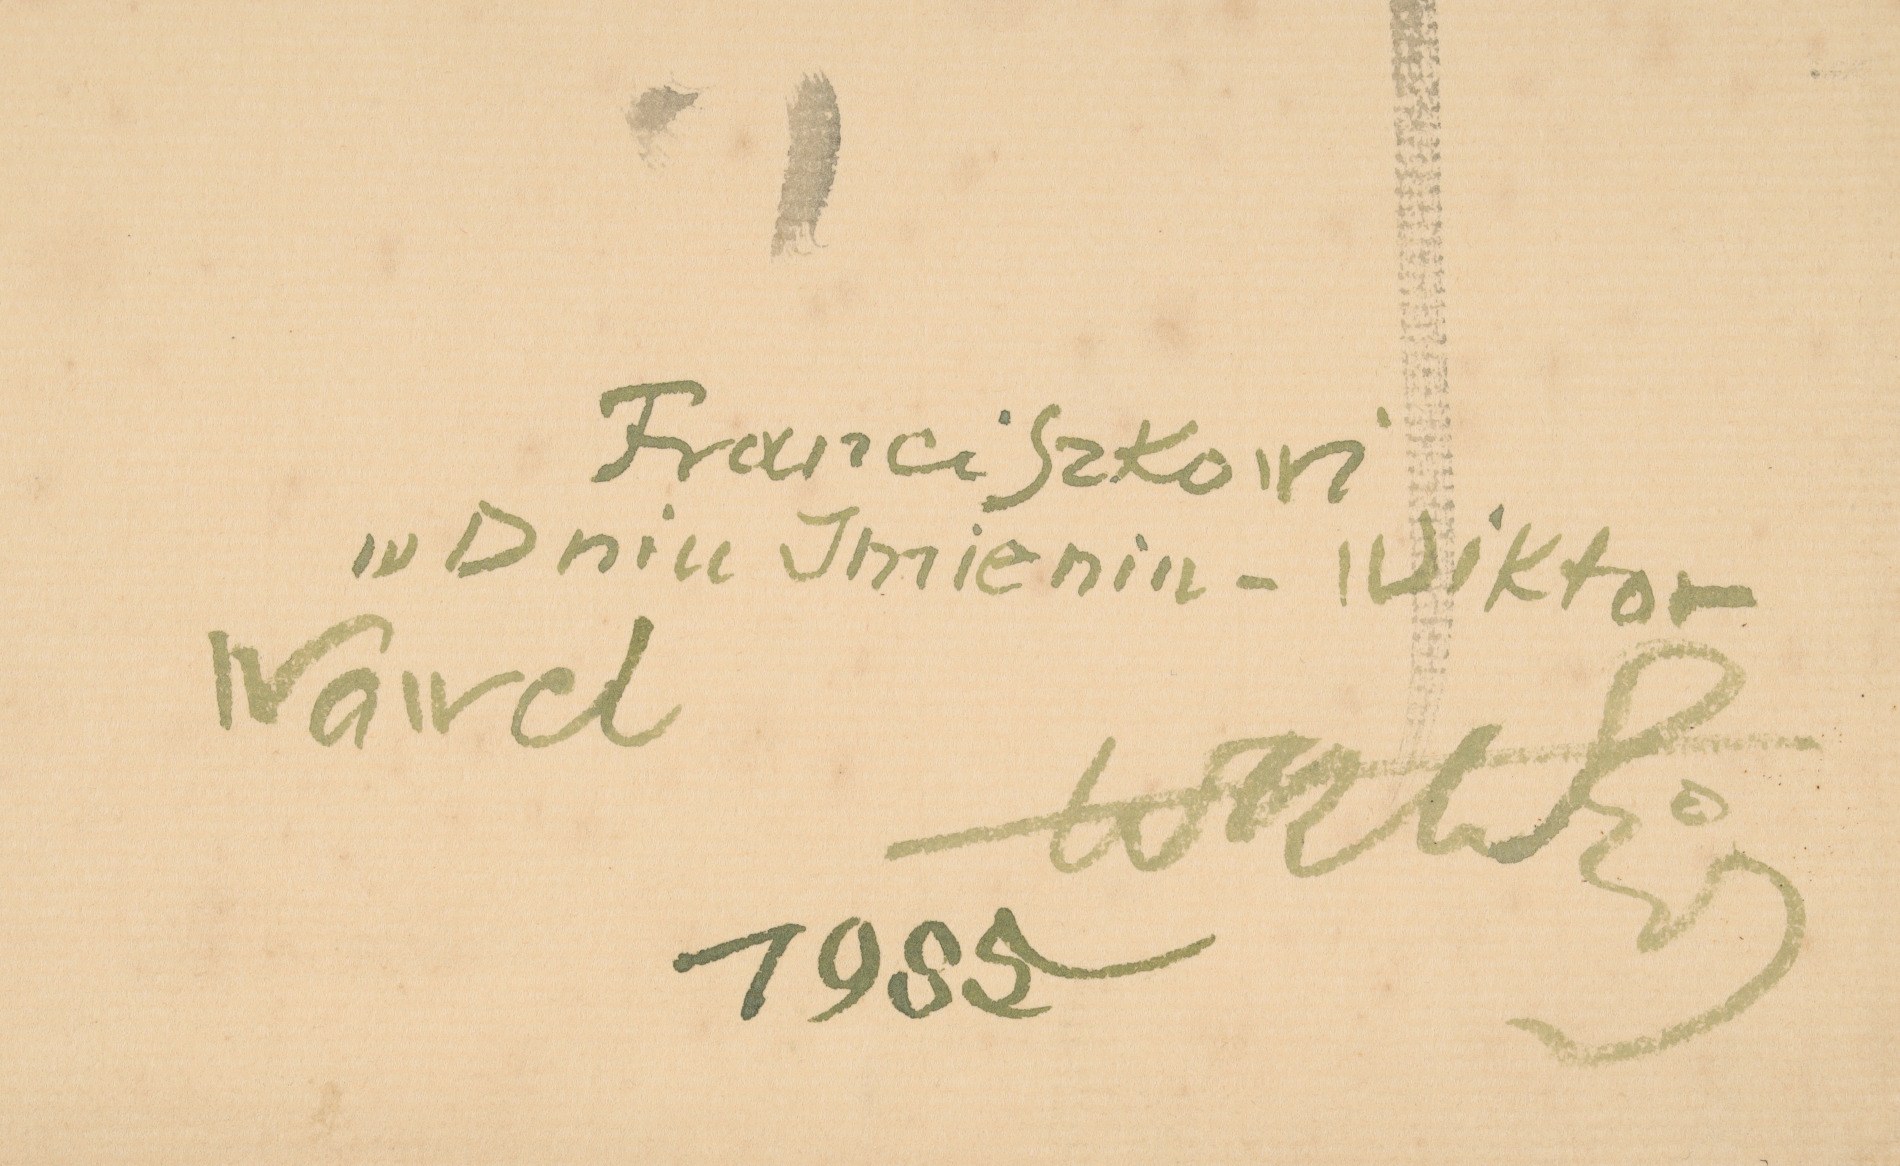 Franciszkowi
w Dniu Imienin - Wiktor
Wawel
1985